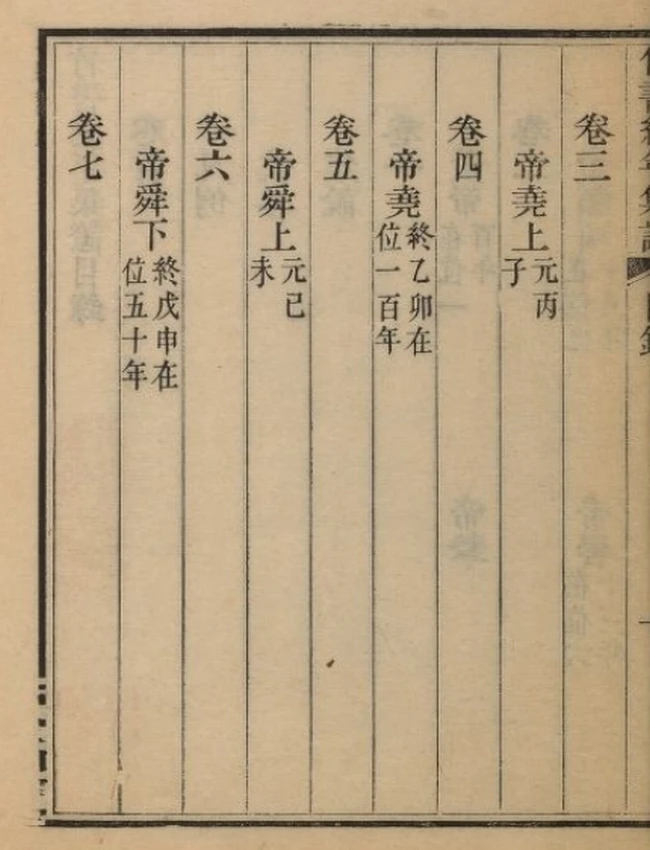 卷三
帝堯上元丙子
卷四
帝堯終乙卯在位一百年
卷五
帝舜上元己未
卷六
帝舜下終戊申在位五十年
卷七